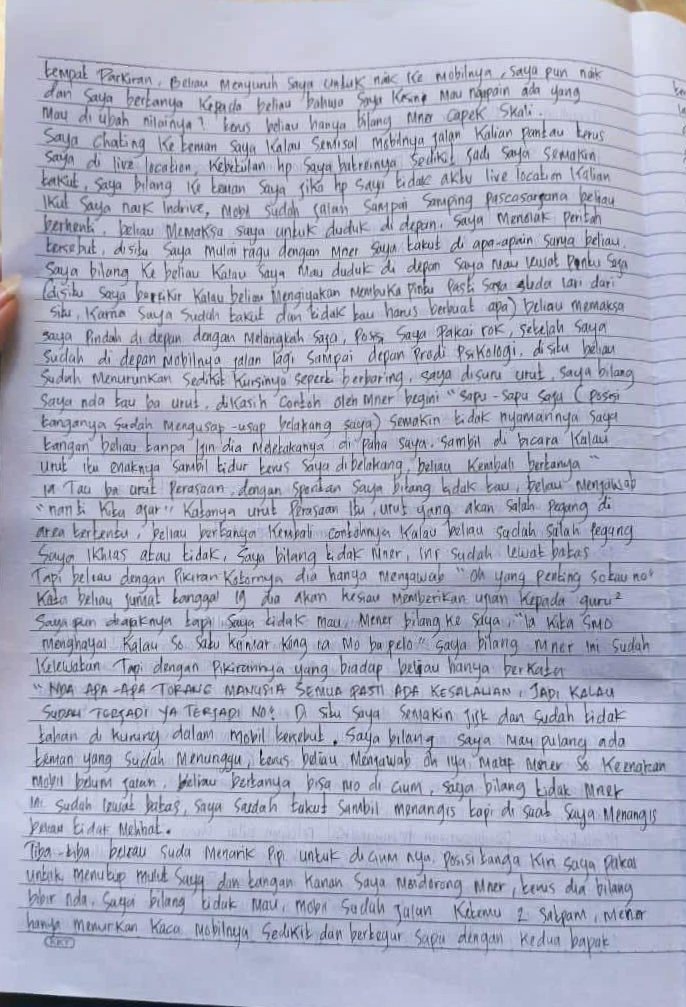 tempat Parkiran, Beliau Menyuruh saya untuk naik Ke Mobilnya, saya pun naik
dan saya bertanya Kepada beliau bahwa saya Kesini Mau ngapain ada yang
Mau di ubah nilainya? terus beliau hanya bilang Mner Capek Skali.
Saya Chating Ke teman saya Kalau Semisal mobilnya jalan Kalian pantau terus
saya di live location, Kebetulan hp saya batreinya Sedikit jadi Saya semakin
takut, saya bilang Ke teman saya jika hp saya tidak aktif live location Kalian
Ikut saya naik Indrive, Mobil sudah jalan Sampai Samping pascasarjana beliau
berhenti, beliau Memaksa saya untuk duduk di depan, saya Menolak perintah
tersebut, disitu saya mulai ragu dengan Mner saya takut di apa-apain sama beliau.
Saya bilang Ke beliau Kalau Saya Mau duduk di depan saya Mau lewat pintu saja
(disitu saya berfikir Kalau beliau Mengiyakan Membuka pintu Pasti saya suda lari dari
situ, Karna saya sudah takut dan tidak tau harus berbuat apa) beliau memaksa
saya Pindah di depan dengan Melangkah saja, Posisi Saya pakai rok, setelah saya
sudah di depan Mobilnya jalan lagi Sampai depan Prodi Psikologi, disitu beliau
sudah Menurunkan Sedikit Kursinya seperti berbaring, saya disuru urut, saya bilang
saya nda tau ba urut, dikasih Contoh oleh Mner begini "Sapu-sapu saja (posisi
tanganya sudah Mengusap-usap belakang saya) Semakin tidak nyamannya saya
tangan beliau tanpa Izin dia Meletakanya di Paha saya. Sambil di bicara Kalau
Urut itu enaknya Sambil tidur terus saya dibelakang, beliau Kembali bertanya "
ia Tau ba urut Perasaan, dengan Spontan Saya bilang tidak tau, beliau Menjawab
"nanti Kita ajar" Katanya urut Perasaan Itu, urut yang akan Salah pegang di
area tertentu, beliau bertanya Kembali Contohnya Kalau beliau sudah Salah Pegang
Saya Ikhlas atau tidak, saya bilang tidak Mner, ini sudah lewat batas
Tapi beliau dengan Pikiran Kotornya dia hanya Menjawab "Oh yang penting so tau no"
Kata beliau jumat tanggal 19 dia akan Memberikan ujian Kepada guru²
saya pun diajaknya tapi saya tidak mau, Mener bilang Ke saya, "Ia Kita SMO
menghayal Kalau So Satu Kamar Kong ia Mo ba pelo" Saya bilang Mner Ini sudah
Kelewatan Tapi dengan Pikirannya yang biadap beliau hanya berkata
"NDA APA-APA TORANG MANUSIA SEMUA PASTI ADA KESALAHAN, JADI KALAU
SUDAH TERJADI YA TERJADI NO". Di situ saya Semakin dan sudah tidak
tahan di Kurung dalam mobil tersebut. Saya bilang Saya Mau pulang ada
teman yang sudah Menunggu, terus beliau Menjawab oh iya, Maap Mener So Keenakan
Mobil belum jalan, beliau bertanya bisa mo di Cium, saya bilang tidak Mner
Ini sudah lewat batas, saya sudah takut sambil menangis tapi di saat saya Menangis
beliau tidak Melihat.
Tiba-tiba beliau suda Menarik Pipi untuk di Cium nya, Posisi tanga Kiri Saya pakai
untuk menutup mulut saya dan tangan Kanan Saya Mendorong Mner, terus dia bilang
bibir nda, Saya bilang tidak Mau, mobil Sudah jalan Ketemu 2 satpam, Mener
hanya menurkan Kaca Mobilnya Sedikit dan bertegur sapa dengan Kedua bapak